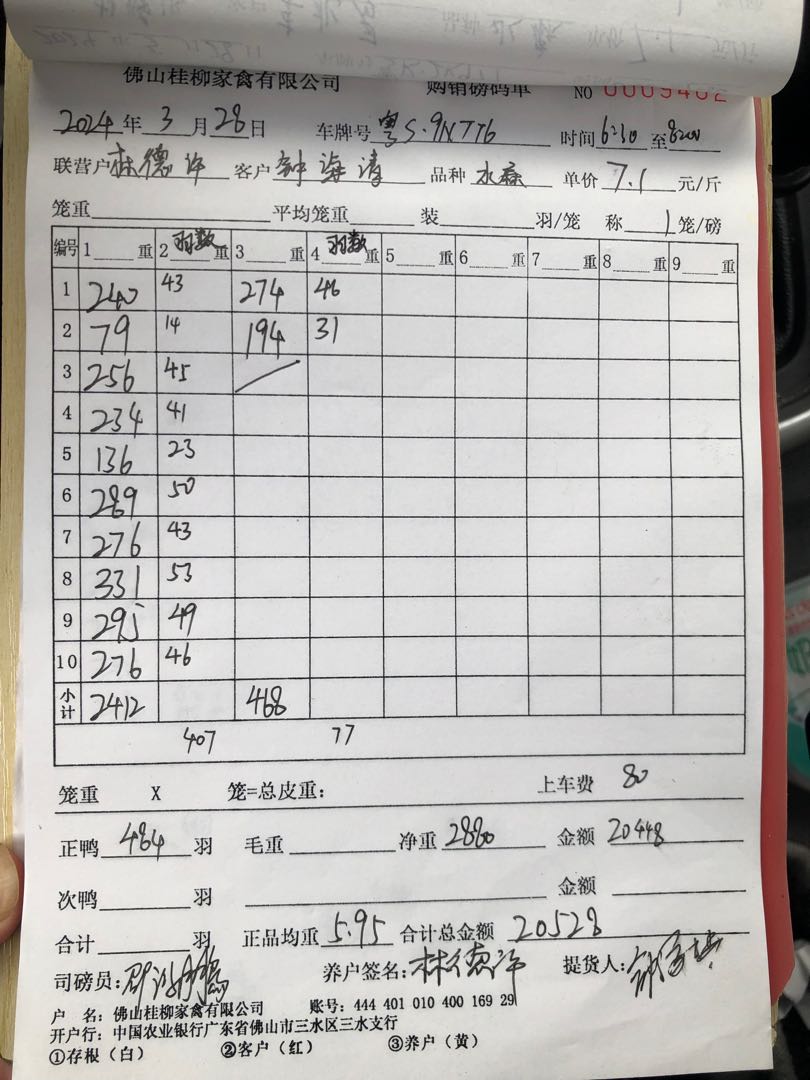 佛山桂柳家禽有限公司 购销磅码单 NO 0009402
2024年3月28日 车牌号 粤S·9N776 时间6:30至8:00
联营户林德许 客户 钟海清 品种 水 单价7.1元/斤
笼重 平均笼重 装 羽/笼 称1笼/磅
编号 1 重 2 羽数 重 3 重 4 羽数 重 5 重 6 重 7 重 8 重 9 重
1 240 43 274 46
2 79 14 194 31
3 256 45
4 234 41
5 136 23
6 289 50
7 276 43
8 331 53
9 295 49
10 276 46
小计 2412 468
407 77
笼重 X 笼=总皮重: 上车费 80
正鸭 484 羽 毛重 净重 2880 金额 20448
次鸭 羽 金额
合计 羽 正品均重 5.95 合计总金额 20528
司磅员: 养户签名: 林德许 提货人:
户 名: 佛山桂柳家禽有限公司 账号: 444 401 010 400 169 29
开户行: 中国农业银行广东省佛山市三水区三水支行
①存根(白) ②客户(红) ③养户(黄)